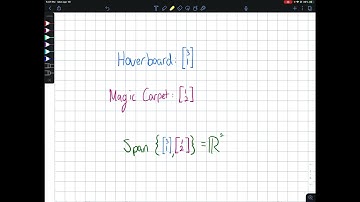 Hoverboard: [3 1]
Magic Carpet: [1 2]
Span {[3 1], [1 2]} = ℝ²